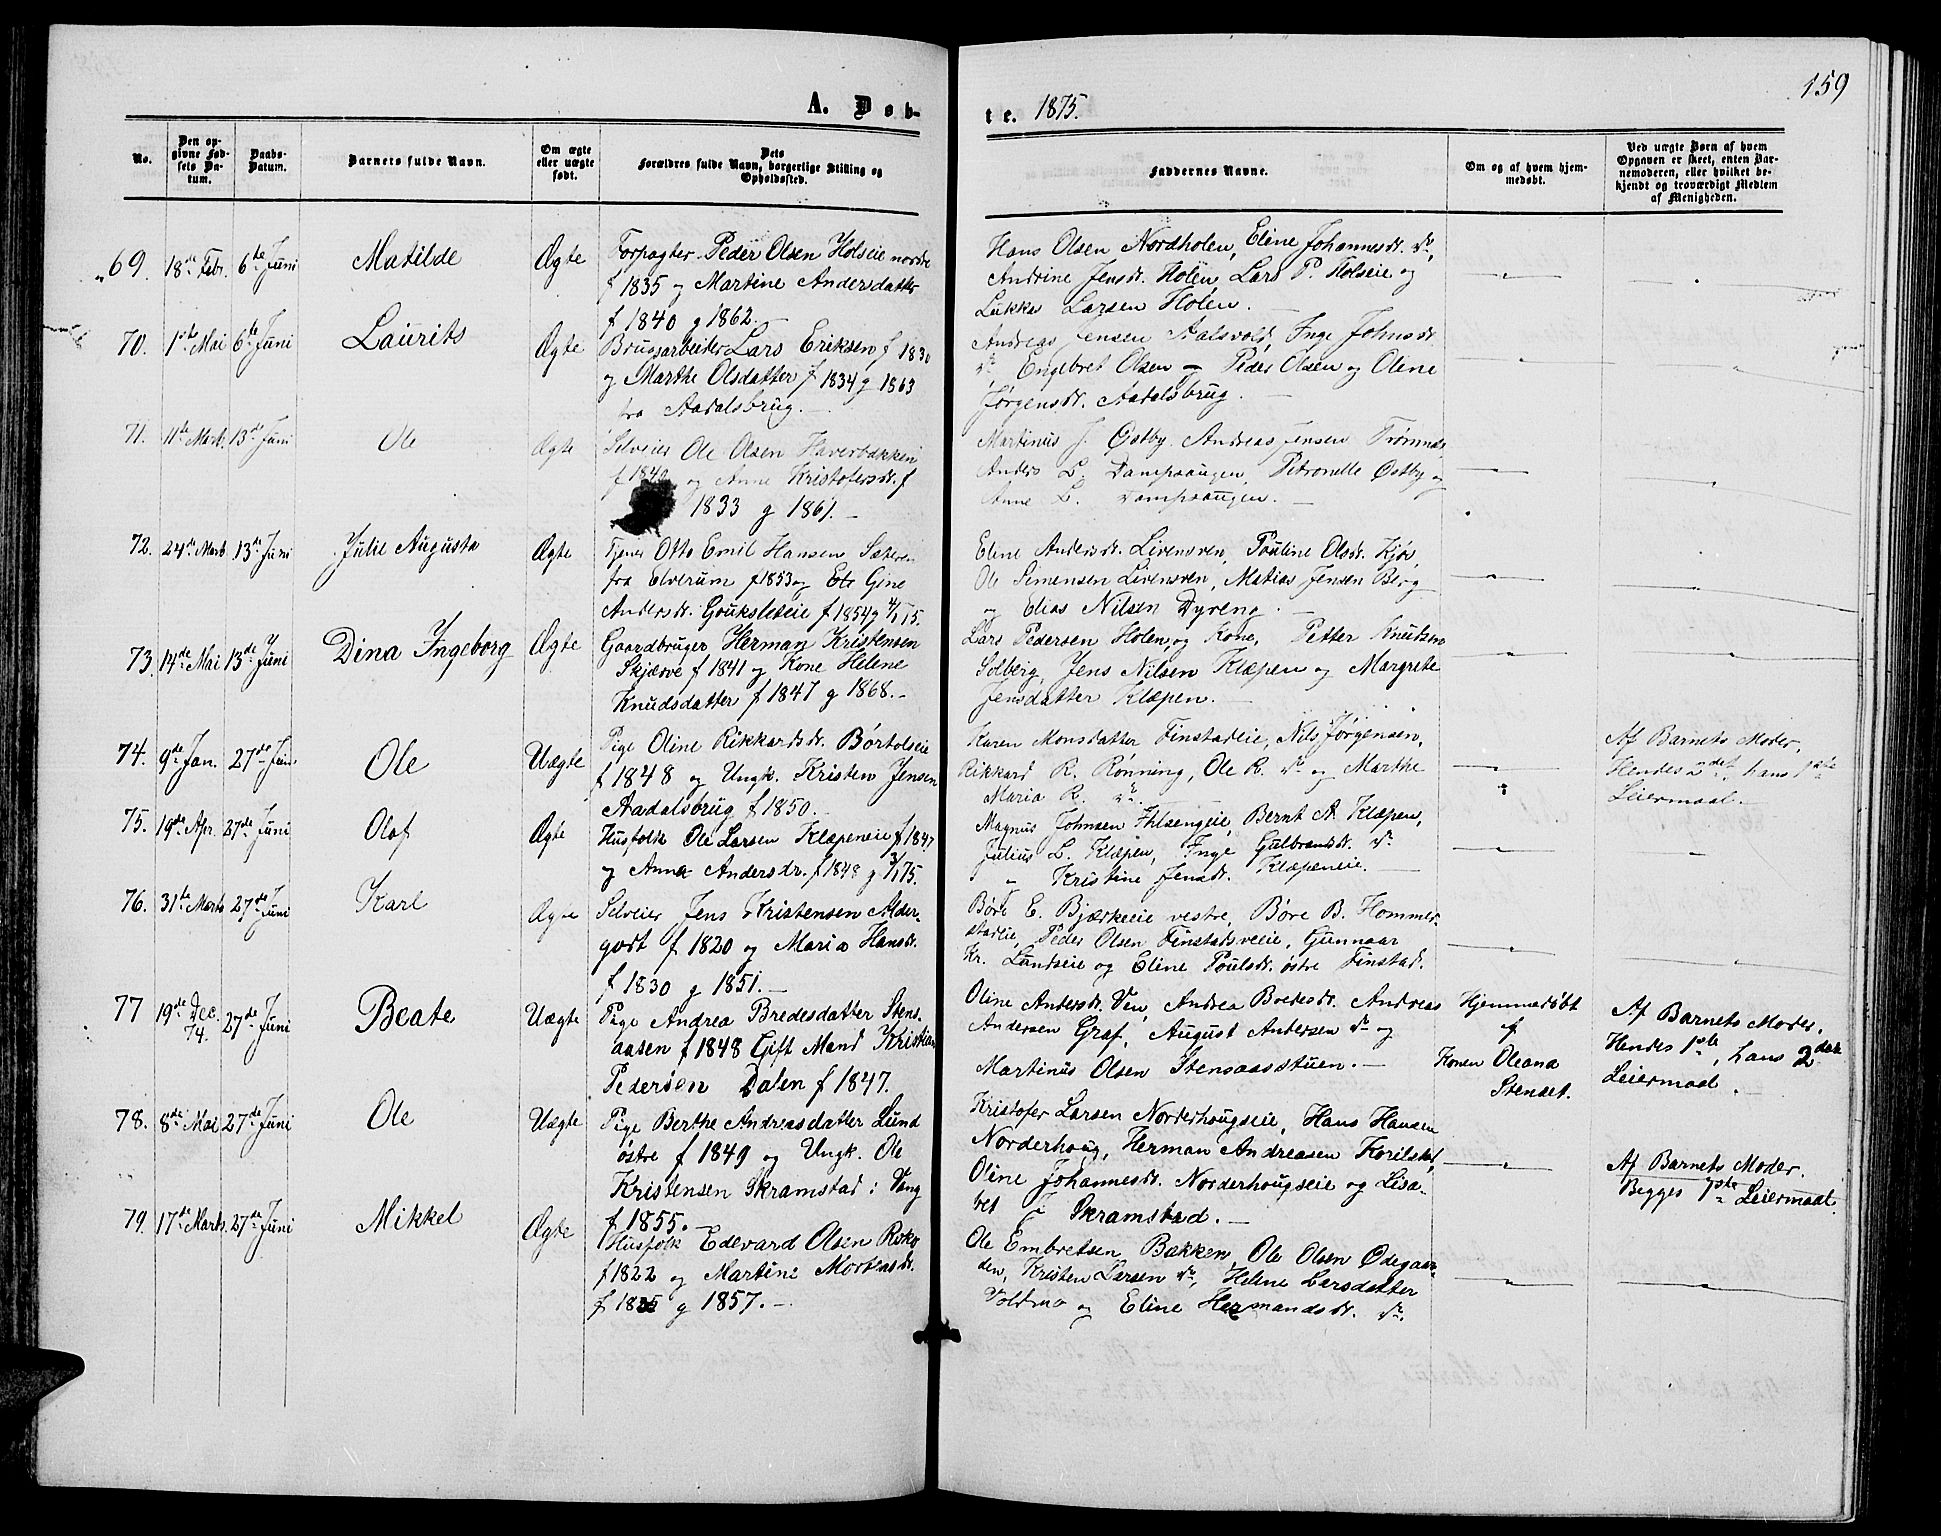 159
A. Døb-
te. 1875.
No.
Den op-
givne Fød-
sels Da-
tum.
Daabs-
Datum.
Barnets fulde Navn.
Om ægte
eller uægte
født.
Dets
Forældres fulde Navn, borgerlige Stilling og
Opholdssted.
Faddernes Navne.
Om og af hvem hjem-
medøbt.
Ved uægte Børn af hvem
Opgaven er skeet, enten Bar-
nemoderen, eller hvilket be-
kjendt og troværdigt Medlem
af Menigheden.
69. 18de Febr. 6te Juni Matilde Ægte
Forpagter Peder Olsen Holseie nordre
f 1835 og Martine Andersdatter
f 1840 g 1862.
Hans Olsen Nordholen, Eline Johannesdr. do,
Andrine Jensdr. Holen, Lars P. Holseie og
Lukke Larsen Holen.
70. 1ste Mai 6te Juni Laurits Ægte
Brugsarbeider Lars Eriksen f 1830
og Marthe Olsdatter f 1834 g 1863
fra Aadalsbrug.
Andreas Jensen Aalsvold, Inge Johnsdr.
do Engebret Olsen - Peder Olsen og Oline
Jørgensdr. Aadalsbrug.
71. 11te Marts. 13de Juni Ole Ægte
Selveier Ole Olsen Haverbakken
f 1840 og Anne Kristofersdr. f
1833 g 1861.
Martinus J. Østby, Andreas Jensen
Anders L. Dampsaugen, Petronelle Østby og
Anne L. Dampsaugen.
72. 24de Marts 13de Juni Julie Augusta Ægte
Tjener Otto Emil Hansen Sæteren
fra Elverum f 1853 og Gine
Andersdr. Gouksleteie f 1854 g 75.
Eline Andersdr. Livensven, Pouline Olsdr. Kjøs,
Ole Simensen Livensven, Matias Jensen Berg
og Elias Nilsen Dyreng.
73. 14de Mai 13de Juni Dina Ingeborg Ægte
Gaardbruger Herman Kristensen
Skjærve f 1841 og Kone Helene
Knudsdatter f 1847 g 1868.
Lars Pedersen Holen og Kone, Petter Knutsen
Solberg, Jens Nilsen Klæpen og Margrete
Jensdatter Klæpen.
74. 9de Jan. 27de Juni Ole Uægte
Pige Oline Rikkardsdr. Børtolseie
f 1848 og Ungk. Kristen Jensen
Aadalsbrug f 1850.
Karen Monsdatter Finstadeie, Nils Jørgensen,
Rikkard R. Rønning, Ole R. do og Marthe
Maria R. do
Af Barnets Moder.
Hendes 2det, hans 1ste
Leiermaal.
75. 19de Apr. 27de Juni Olaf Ægte
Husfolk Ole Larsen Klæpeneie f 1847
og Anna Andersdr. f 1848 g 3/1 75.
Magnus Johnsen Ihlsengeie, Bernt A. Klæpen,
Julius L. Klæpen, Inge Gulbrandsdr. do
" Kristine Jensdr. Klæpeneie.
76. 31te Marts 27de Juni Karl Ægte
Selveier Jens Kristensen Alder-
godt f 1820 og Maria Hansdr.
f 1830 g 1851.
Børe E. Bjærkeeie vestre, Børe B. Hommer-
stadeie, Peder Olsen Finstadsveie, Gunnaar
Kr. Lundseie og Eline Poulsdr. østre Finstad.
77 19de Dec. 74. 27de Juni Beate Uægte
Pige Andrea Bredesdatter Stens-
aasen f 1848 Gift Mand Kristian
Pedersen Dalen f 1847.
Oline Andersdr. Ven, Andrea Bredesdr. Andreas
Andersen Graf, August Andersen do og
Martinus Olsen Stensaasstuen.
Hjemmedøbt
af
Konen Oleana
Stenset.
Af Barnets Moder.
Hendes 1ste, hans 2det
Leiermaal.
78. 8de Mai 27de Juni Ole Uægte
Pige Berthe Andreasdatter Lund
østre f 1849 og Ungk. Ole
Kristensen Skramstad i Vang
f 1855.
Kristofer Larsen Norderhougseie, Hans Hansen
Norderhoug, Herman Andreasen Korilstad,
Oline Johannesdr. Norderhougseie og Lisa-
bet J. Skramstad.
Af Barnets Moder.
Begges 1ste Leiermaal.
79. 17de Marts. 27de Juni Mikkel Ægte
Husfolk Edevard Olsen Roko
f 1822 og Martine Mortensdr.
f 1835 g 1857.
Ole Embretsen Bakken, Ole Olsen Ødegaar-
den, Kristen Larsen do, Helene Larsdatter
Voldmo og Eline Hermandsdr. do.